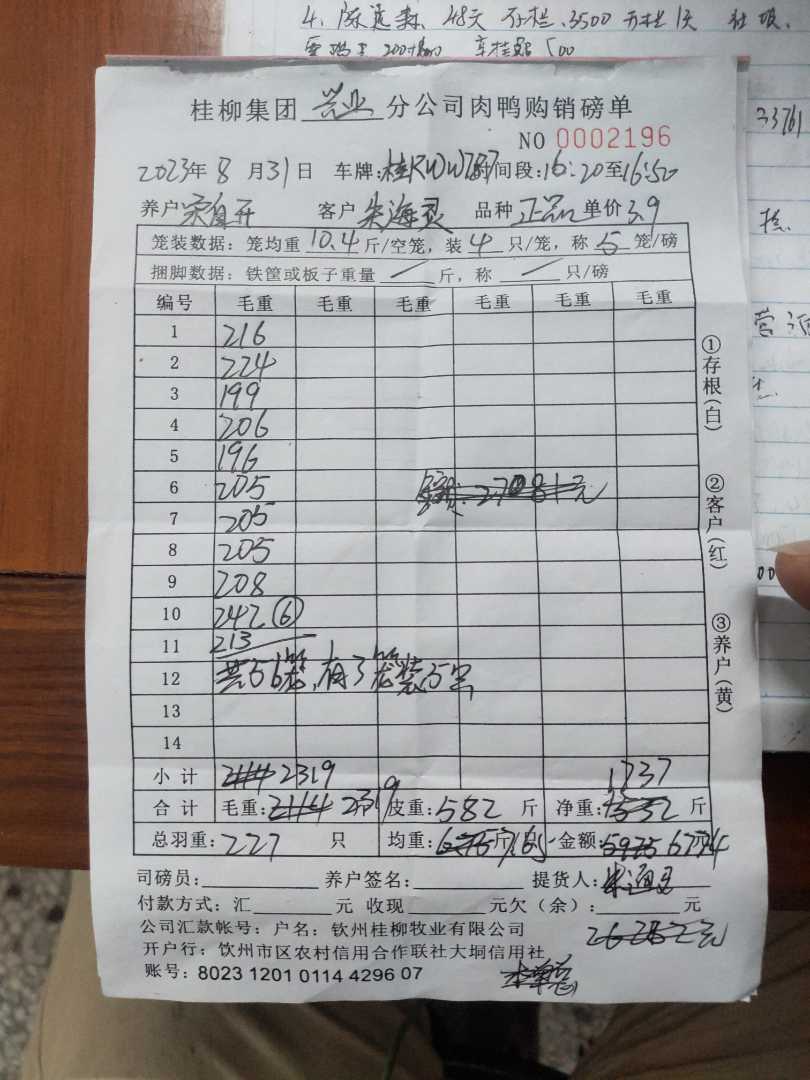 4、陈运森 48天
桂柳集团 兴业 分公司肉鸭购销磅单
NO 0002196
2023年8月31日 车牌:桂RWW787时间段:16:20至16:50
养户 客户 朱海灵 品种 正品 单价 3.9
笼装数据: 笼均重 10.4 斤/空笼，装 4 只/笼，称 5 笼/磅
捆脚数据: 铁筐或板子重量 / 斤，称 / 只/磅
编号 毛重 毛重 毛重 毛重 毛重 毛重
1 216
2 224
3 199
4 206
5 196
6 205
7 205
8 205
9 208
10 242 ⑥
11 213
12 共56笼，有3笼装5只
13
14
小计 2114 2319 1737
合计 毛重: 2114 2319 皮重: 582 斤 净重: 1532 斤
总羽重: 227 只 均重: 6.75斤 7.65 金额: 5975 6774
司磅员: 养户签名: 提货人:
付款方式: 汇 元 收现 元欠（余）: 元
公司汇款帐号: 户名: 钦州桂柳牧业有限公司
开户行: 饮州市区农村信用合作联社大垌信用社
账号: 8023 1201 0114 4296 07
①存根(白)
②客户(红)
③养户(黄)
33761